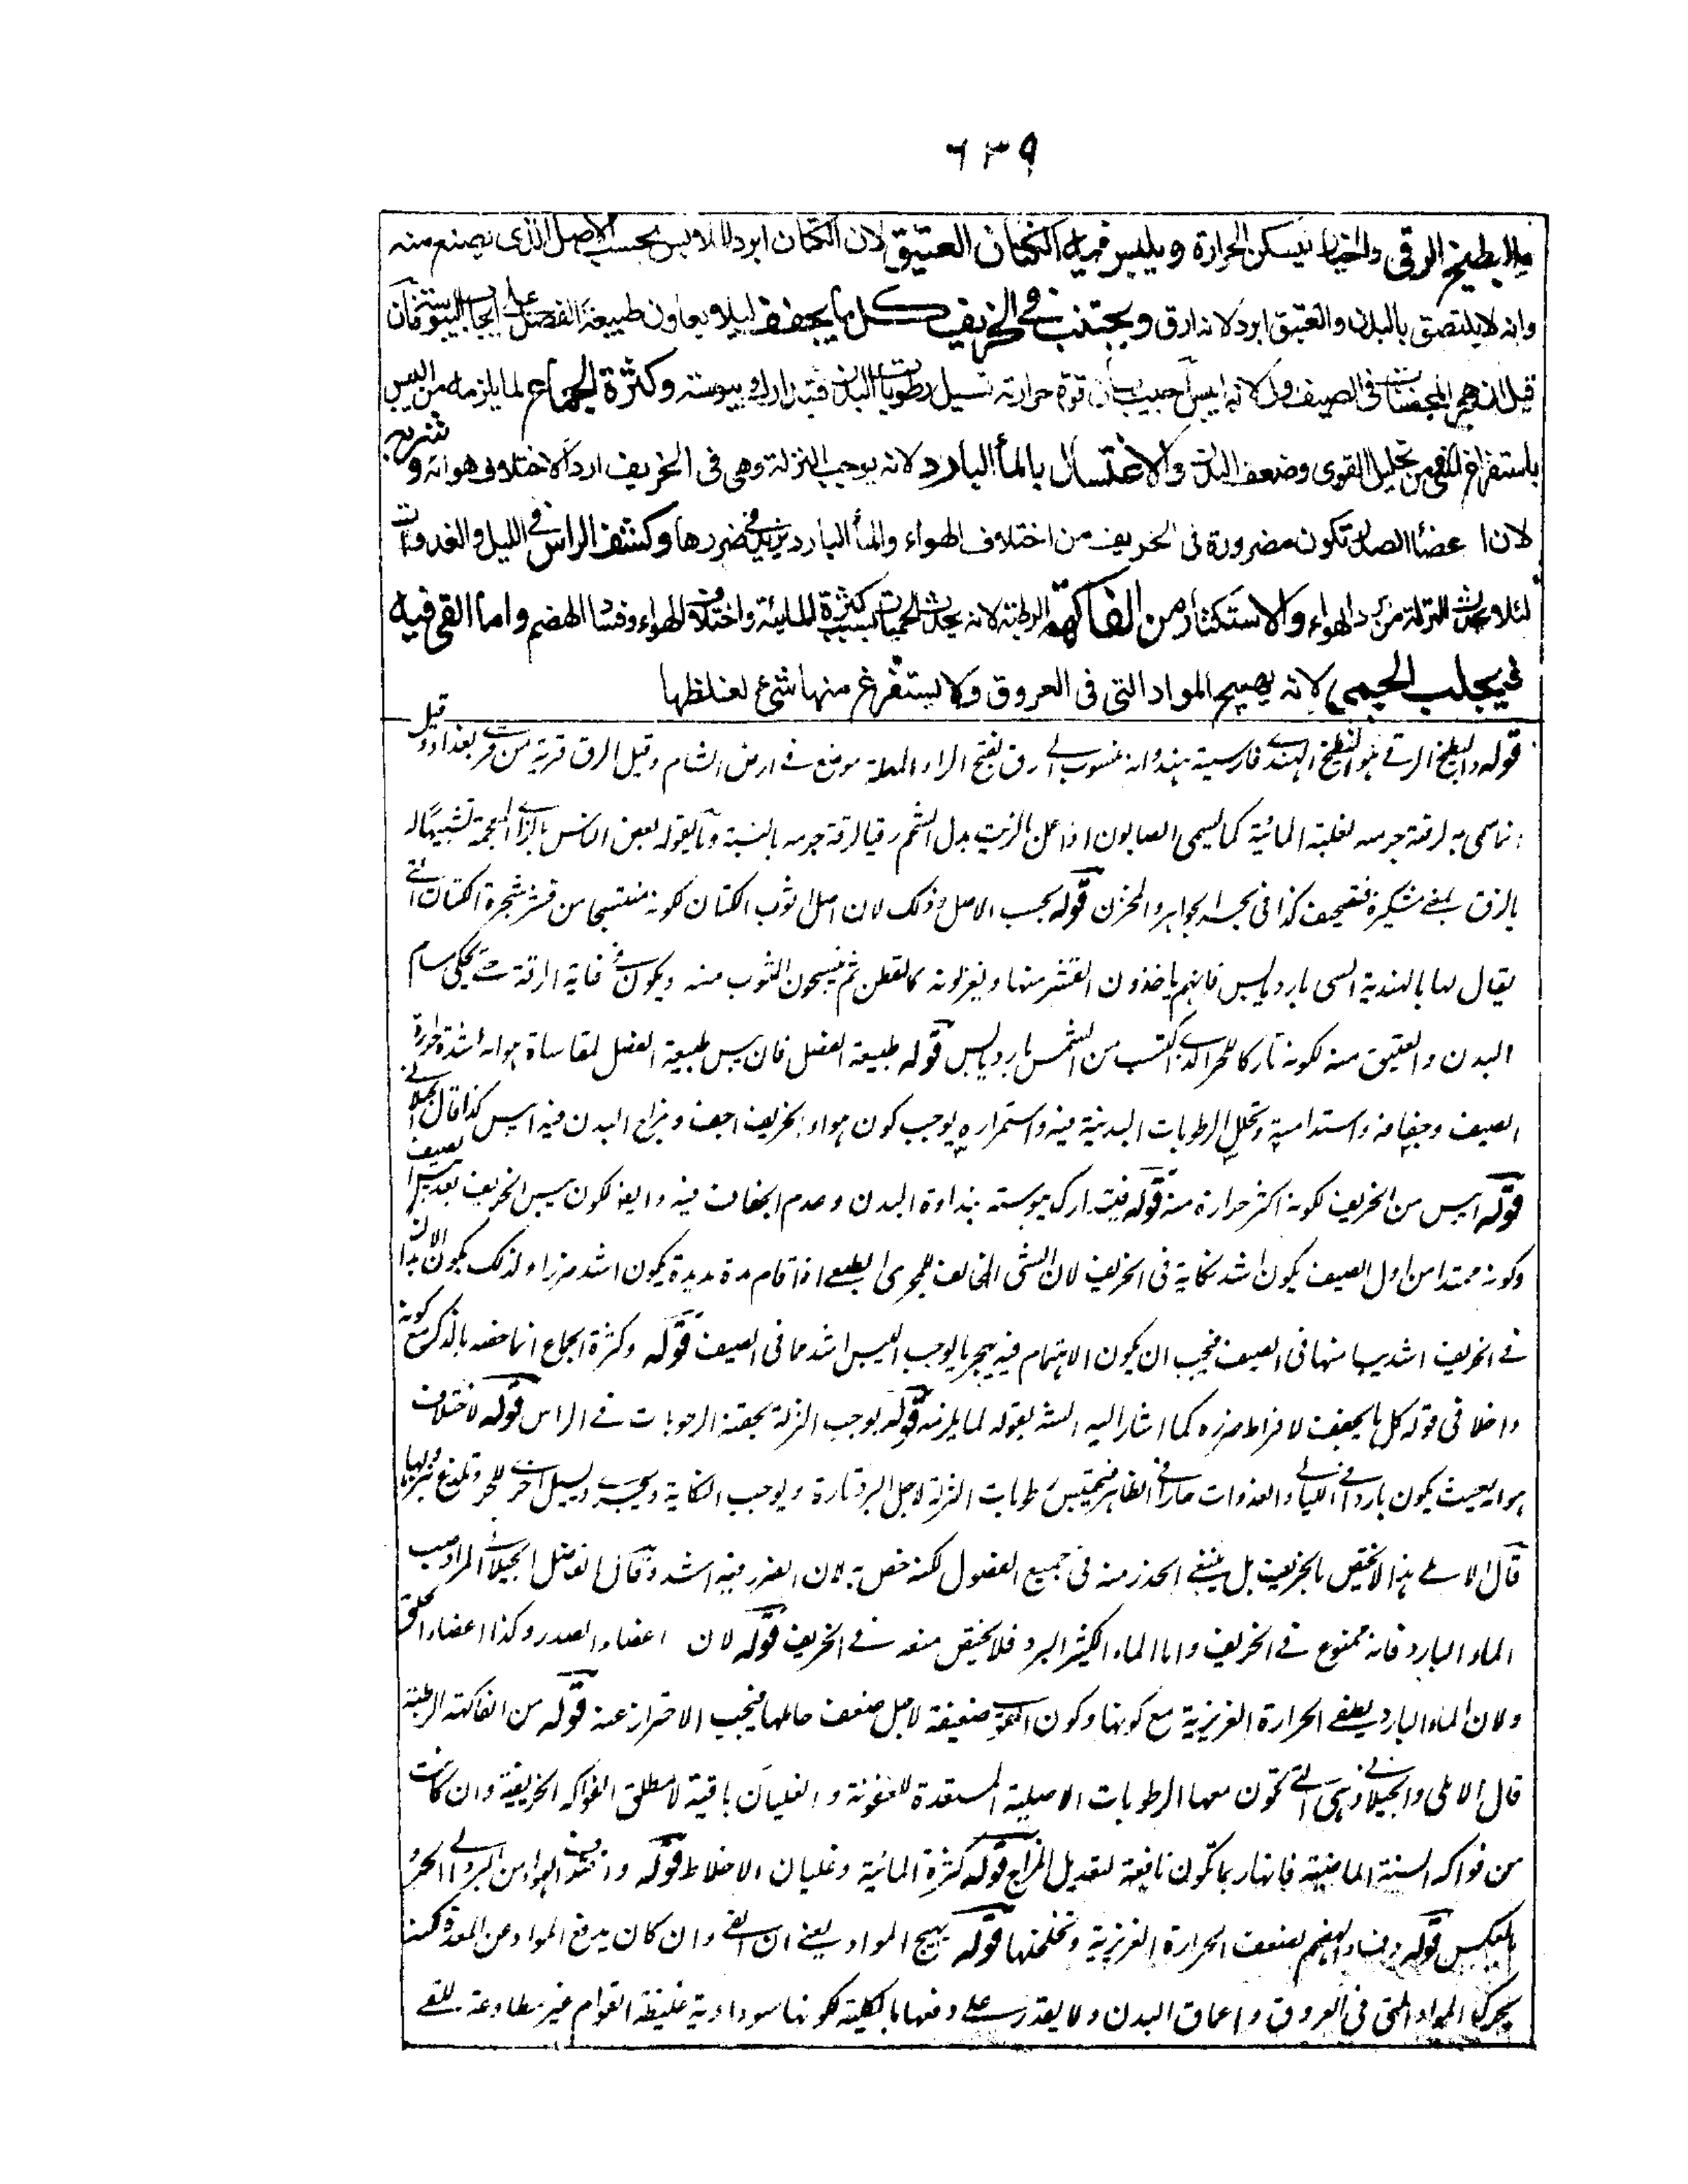 ٦٣٩
والبطيخ الرقي والخيار ليسكن الحرارة ويلبس فيه الكتان العتيق لان الكتان ابرد الملابس بحسب الاصل الذى يصنع منه
وانه لا يلتصق بالبدن والعتيق ابرد لانه ارق ويجتنب فى الخريف كل ما يجفف ليلا يعاون طبيعة الفصل على ايجاب اليبوسة فان
قيل لم هجر المجففات فى الصيف اولى لانه ايبس اجيب بان قوة حرارته تسيل رطوبات البدن فتدارك يبوسته وكثرة الجماع لما يلزمه من اليبس
باستفراغ المنى من تحليل القوى وضعف البدن والاغتسال بالماء البارد لانه يوجب النزلة وهى فى الخريف اردأ لاختلاف هوائه وشربه
لان اعضاء الصدر تكون مضرورة فى الخريف من اختلاف الهواء والماء البارد يزيد فى ضررها وكشف الراس فى الليل والغدوات
لئلا يحدث النزلة من برد الهواء والاستكثار من الفاكهة الرطبة لانه يحدث الحميات بسبب كثرة المائية واختلاف الهواء وفساد الهضم واما القى فيه
فيجلب الحمى لانه يهيج المواد التى فى العروق ولا يستفرغ منها شئ لغلظها
قوله والبطيخ الرقے هو البطيخ الهندے فارسية هندوانه منسوب الے رق بفتح الراء المهملة موضع فے ارض الشام وقيل الرق قرية من قرے بغداد وقيل
انما سمى به لرقة جرمه لغلبة المائية كما يسمى الصابون اذا عمل بالزيت بدل الشحم رقيا لرقة جرمه بالنسبة وما يقوله بعض الناس بالزاے المعجمة تشبيها له
بالزق بمعنے مشكيزه فتصحيف كذا فى بحر الجواهر والمخزن قوله بحسب الاصل وذلك لان اصل ثوب الكتان كونه منتسجا من قشر شجرة الكتان التے
يقال لها بالهندية السى بارد يابس فانهم ياخذون القشر منها ويغزلونه كالقطن ثم ينسجون الثوب منه ويكون فے غاية الرقة حتے يحكى مسام
البدن والعتيق منه لكونه تاركا للحر الذے اكتسب من الشمس بارد يابس قوله طبيعة الفصل فان يبس طبيعة الفصل لمقاساة هوائه شدة حرارة
الصيف وجفافه واستدامته وتحلل الرطوبات البدنية فيه واستمراره يوجب كون هواء الخريف اجف ومزاج البدن فيه ايبس كذا قال الجيلانے
قوله ايبس من الخريف لكونه اكثر حرارة منه قوله فيتدارك يبوسته بنداوة البدن وعدم الجفاف فيه وايضا لكون يبس الخريف بعد يبس الصيف
وكونه ممتدا من اول الصيف يكون اشد نكاية فى الخريف لان الشئ المخالف للمجرى الطبيعے اذا قام مدة مديدة يكون اشد ضررا ولذلك يكون الابدان
فے الخريف اشد يبسا منها فى الصيف فيجب ان يكون الاهتمام فيه بهجر ما يوجب اليبس اشد مما فى الصيف قوله وكثرة الجماع انما خصه بالذكر مع كونه
داخلا فى قوله كل ما يجفف لافراط ضرره كما اشار اليه الشه بقوله لما يلزمه قوله يوجب النزلة بحقنه الرطوبات فے الراس قوله لاختلاف
هوائه بحيث يكون باردا فے الليالے والغدوات حارا فے الظهائر فيحتبس رطوبات النزلة لاجل البرد تارة ويوجب النكاية ويسيل اخرے للحر
قال الآملے هذا لا يختص بالخريف بل ينبغے الحذر منه فى جميع الفصول لكنه خص به لان الضرر فيه اشد وقال الفاضل الجيلانے المراد صب
الماء البارد فانه ممنوع فے الخريف واما الماء الكثير البرد فلا يختص منعه فے الخريف قوله لان اعضاء الصدر وكذا اعضاء الحلق
ولان الماء البارد يطفے الحرارة الغريزية مع كونها وكون القوة ضعيفة لاجل ضعف حاملها فيجب الاحتراز عنه قوله من الفاكهة الرطبة
قال الآملى والجيلانے وهى التے تكون معها الرطوبات الاصلية المستعدة للعفونة والغليان باقية لا مطلق الفواكه الخريفية وان كانت
من فواكه السنة الماضية فانها ربما تكون نافعة لتعديل المزاج قوله كثرة المائية وغليان الاخلاط قوله واختلاف الهواء من البرد الے الحر و
بالعكس قوله وفساد الهضم لضعف الحرارة الغريزية وتخلخلها قوله يهيج المواد يعنے ان القے وان كان يدفع المواد عن المعدة لكنه
يحرك المواد التى فى العروق واعماق البدن ولا يقدر علے دفعها بالكلية لكونها سوداوية غليظة القوام غير مطاوعة للقے